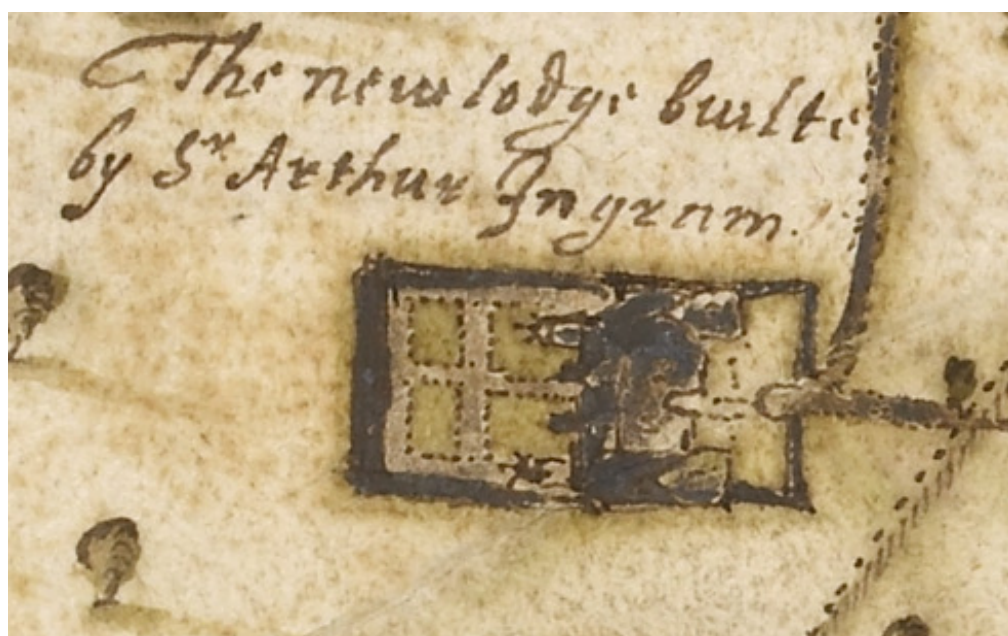 The new lodge builte
by Sr Arthur Ingram.